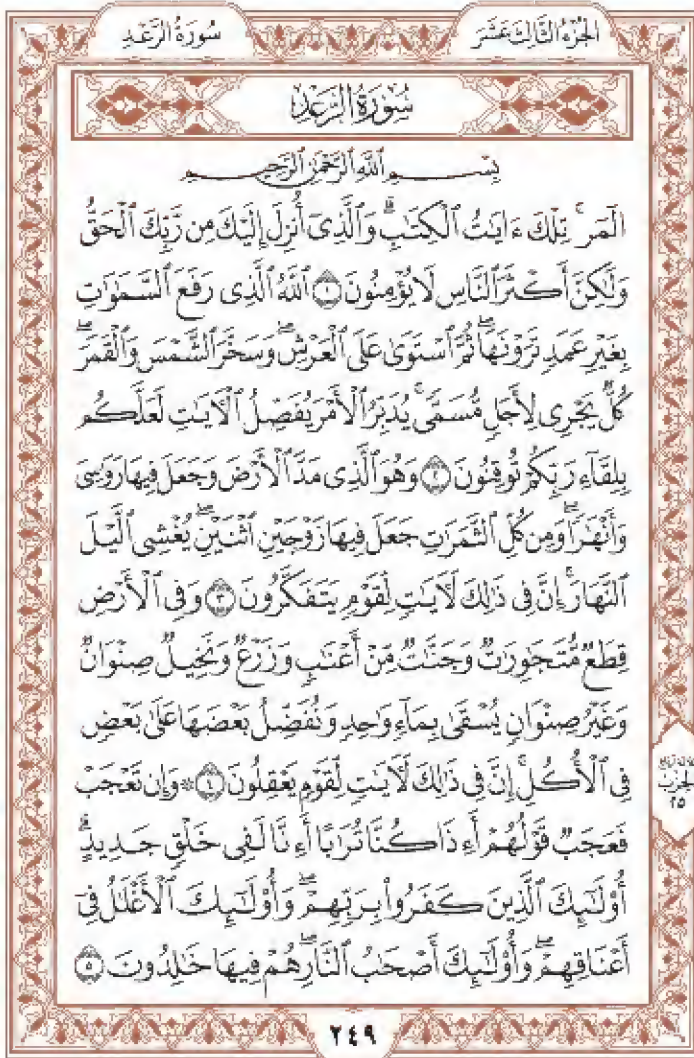 الجُزْءُ الثَّالِثَ عَشَرَ
سُورَةُ الرَّعْدِ
سُورَةُ الرَّعْدِ
بِسْمِ ٱللَّهِ ٱلرَّحْمَٰنِ ٱلرَّحِيمِ
الٓمٓرۚ تِلْكَ ءَايَٰتُ ٱلْكِتَٰبِۗ وَٱلَّذِىٓ أُنزِلَ إِلَيْكَ مِن رَّبِّكَ ٱلْحَقُّ
وَلَٰكِنَّ أَكْثَرَ ٱلنَّاسِ لَا يُؤْمِنُونَ ١ ٱللَّهُ ٱلَّذِى رَفَعَ ٱلسَّمَٰوَٰتِ
بِغَيْرِ عَمَدٍ تَرَوْنَهَاۖ ثُمَّ ٱسْتَوَىٰ عَلَى ٱلْعَرْشِۖ وَسَخَّرَ ٱلشَّمْسَ وَٱلْقَمَرَۖ
كُلٌّ يَجْرِى لِأَجَلٍ مُّسَمًّىۚ يُدَبِّرُ ٱلْأَمْرَ يُفَصِّلُ ٱلْءَايَٰتِ لَعَلَّكُم
بِلِقَآءِ رَبِّكُمْ تُوقِنُونَ ٢ وَهُوَ ٱلَّذِى مَدَّ ٱلْأَرْضَ وَجَعَلَ فِيهَا رَوَٰسِىَ
وَأَنْهَٰرًاۖ وَمِن كُلِّ ٱلثَّمَرَٰتِ جَعَلَ فِيهَا زَوْجَيْنِ ٱثْنَيْنِۖ يُغْشِى ٱلَّيْلَ
ٱلنَّهَارَۚ إِنَّ فِى ذَٰلِكَ لَءَايَٰتٍ لِّقَوْمٍ يَتَفَكَّرُونَ ٣ وَفِى ٱلْأَرْضِ
قِطَعٌ مُّتَجَٰوِرَٰتٌ وَجَنَّٰتٌ مِّنْ أَعْنَٰبٍ وَزَرْعٌ وَنَخِيلٌ صِنْوَانٌ
وَغَيْرُ صِنْوَانٍ يُسْقَىٰ بِمَآءٍ وَٰحِدٍ وَنُفَضِّلُ بَعْضَهَا عَلَىٰ بَعْضٍ
فِى ٱلْأُكُلِۚ إِنَّ فِى ذَٰلِكَ لَءَايَٰتٍ لِّقَوْمٍ يَعْقِلُونَ ٤ ۞ وَإِن تَعْجَبْ
فَعَجَبٌ قَوْلُهُمْ أَءِذَا كُنَّا تُرَٰبًا أَءِنَّا لَفِى خَلْقٍ جَدِيدٍۗ
أُو۟لَٰٓئِكَ ٱلَّذِينَ كَفَرُوا۟ بِرَبِّهِمْۖ وَأُو۟لَٰٓئِكَ ٱلْأَغْلَٰلُ فِىٓ
أَعْنَاقِهِمْۖ وَأُو۟لَٰٓئِكَ أَصْحَٰبُ ٱلنَّارِۖ هُمْ فِيهَا خَٰلِدُونَ ٥
الحِزْب
٢٥
٢٤٩